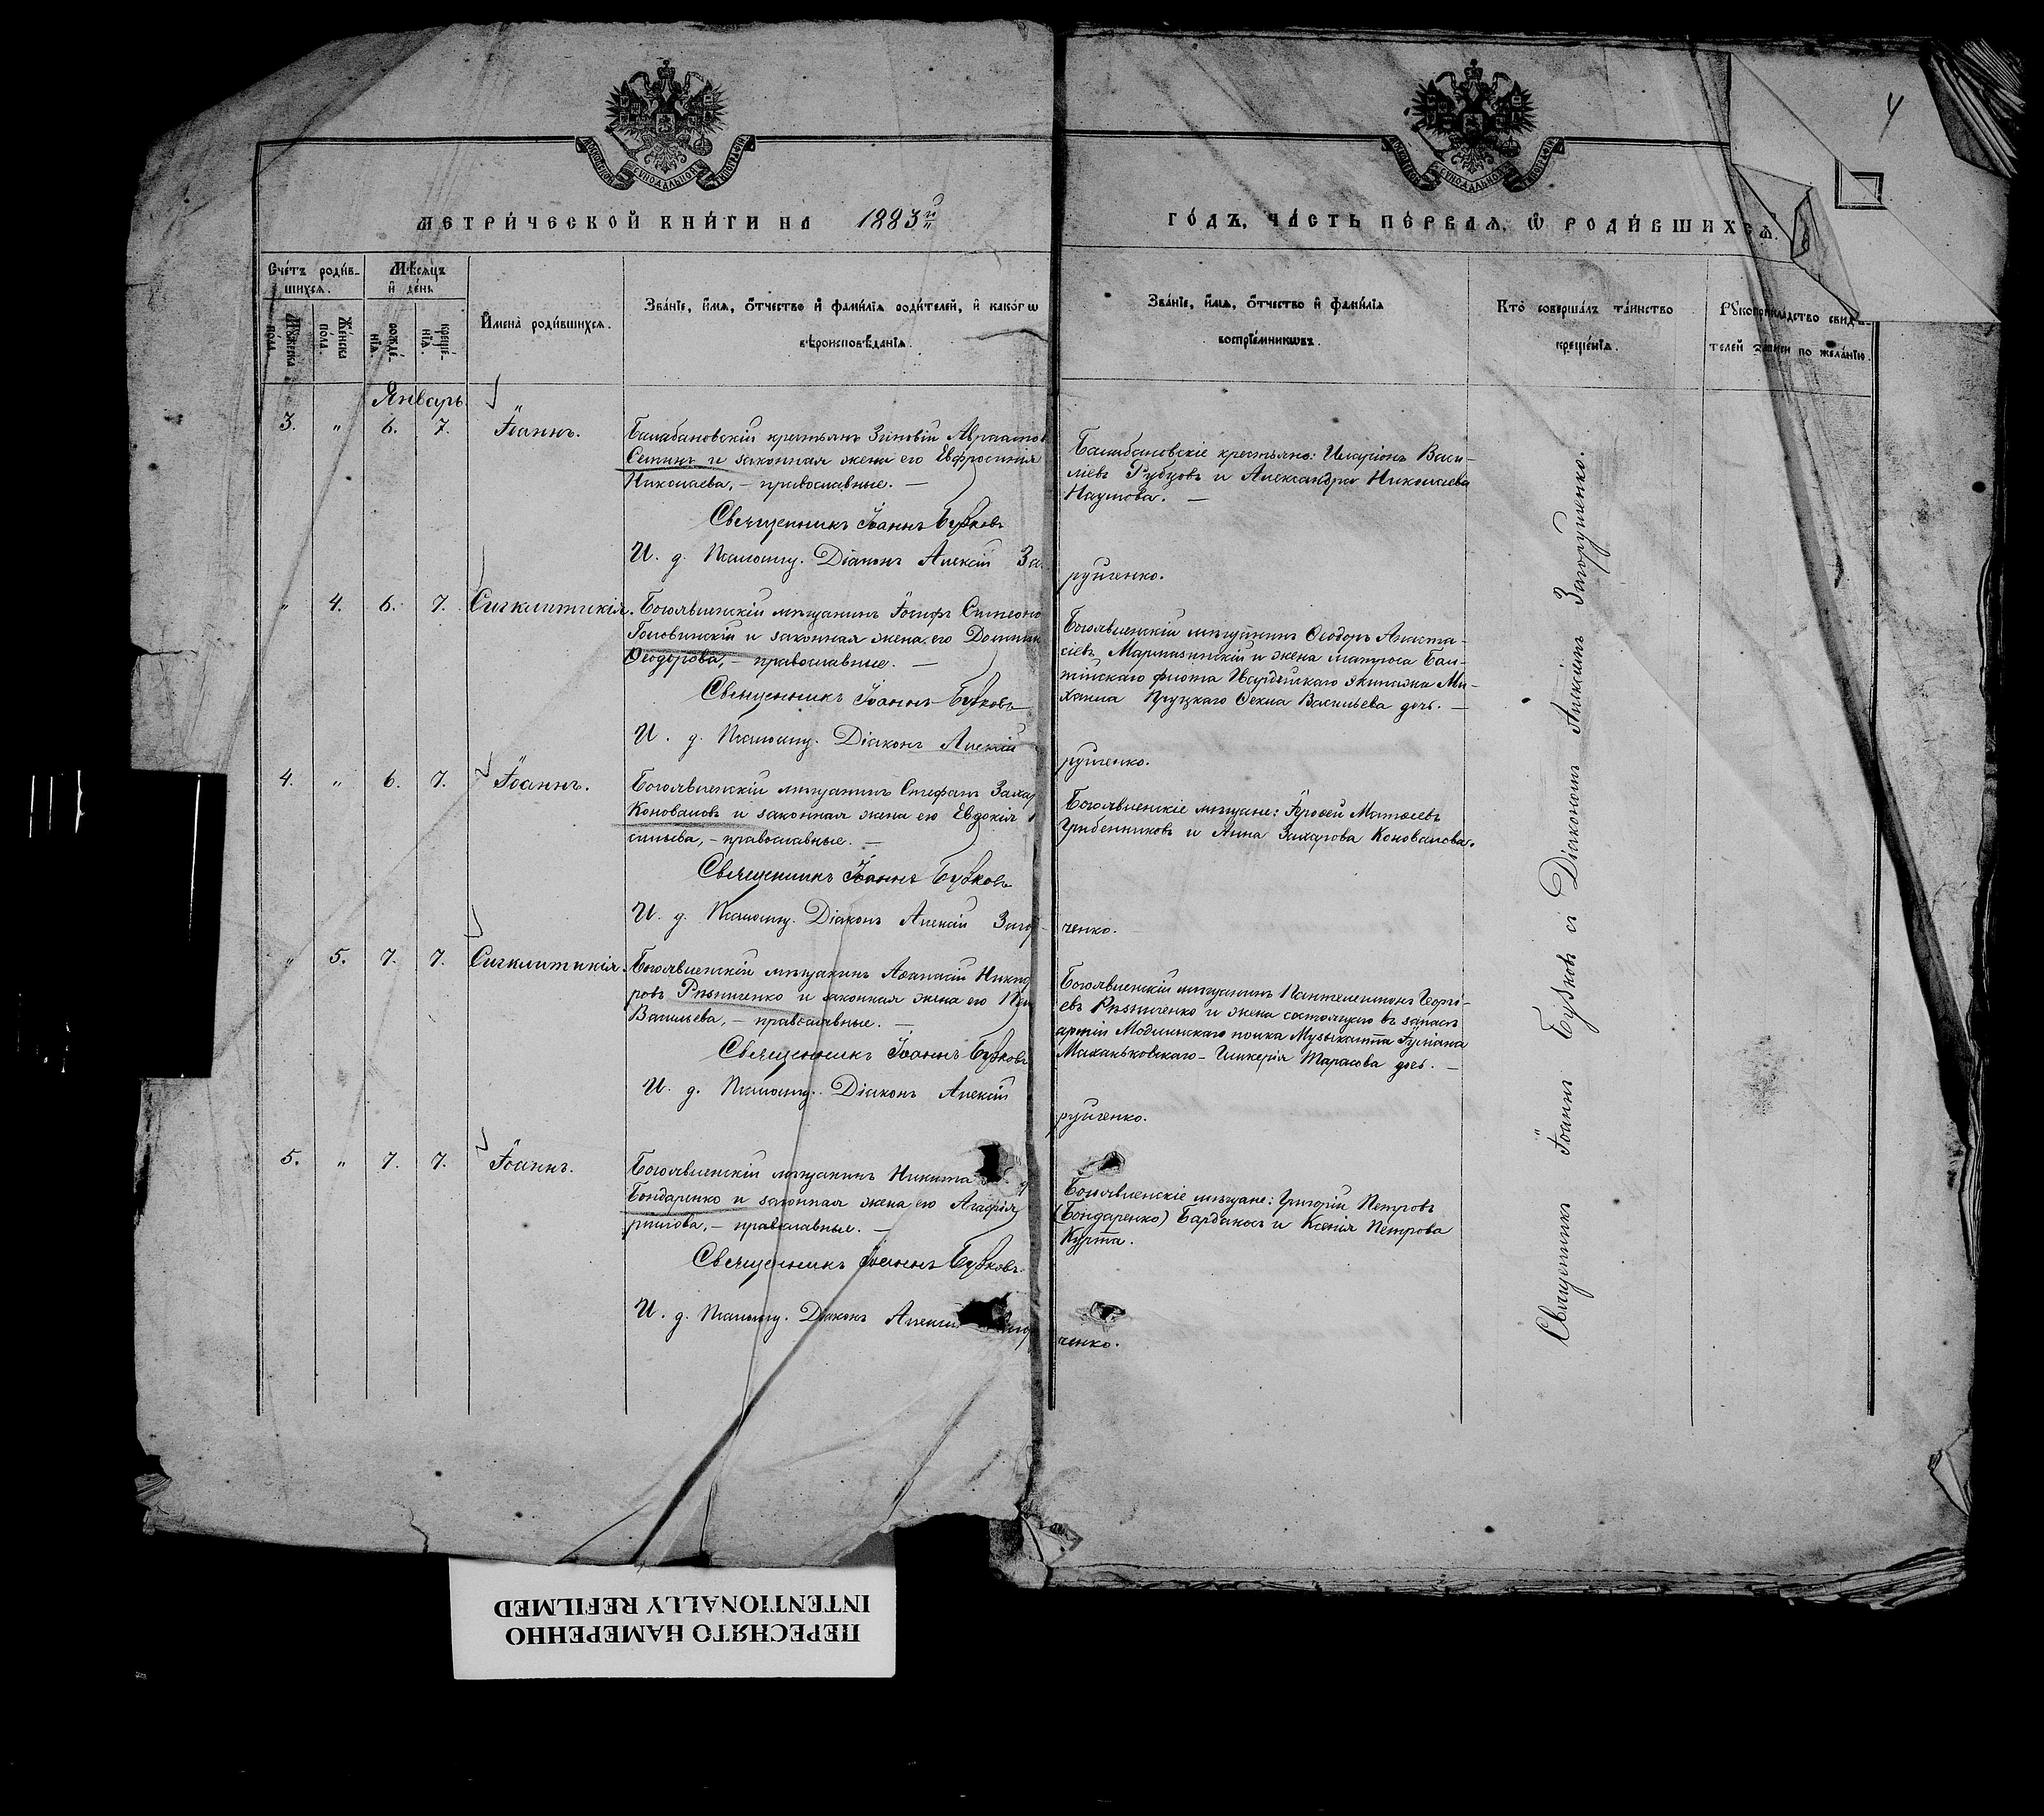 4
МОСКОВСКОЙ СѴНОДАЛЬНОЙ ТИПОГРАФІИ
МОСКОВСКОЙ СѴНОДАЛЬНОЙ ТИПОГРАФІИ
МЕТРИ́ЧЕСКОЙ КНИ́ГИ НА 1883й
ГО́ДЪ, ЧА́СТЬ ПЕ́РВАЯ, Ѡ҆ РОДИ́ВШИХСЯ.
Сче́тъ роди́в-
шихся.
Мѣ́сяцъ
и҆ де́нь
Мꙋ́жеска
пола.
Же́нска
по́ла.
рожде́-
нїѧ.
креще́-
нїѧ.
И҆мена̀ роди́вшихсѧ.
Зва́нїе, и҆́мѧ, ѻ҆́тчество и҆ фами́лїѧ роди́телей, и҆ како́гѡ
вѣроисповѣ́данїѧ.
Зва́нїе, и҆́мѧ, ѻ҆́тчество и҆ фами́лїѧ
воспрїе́мникѡвъ.
Кто̀ соверша́лъ та́инство
креще́нїѧ.
Рꙋкоприкла́дство свидѣ-
телей за́писи по жела́нїю.
Январь
3. " 6. 7. Іоаннъ.
Балабановскій крестьянъ Зиновій Авраамов
Семинъ и законная жена его Евфросинія
Николаева, – православные. –
Священникъ Іоаннъ Бубковъ
И. д. Псаломщ. Діаконъ Алексій За
Балабановскіе крестьяне: Иларіонъ Васи-
ліевъ Рубцовъ и Александра Николаева
Наумова. –
рученко.
" 4. 6. 7. Сигклитикія.
Богоявленскій мѣщанинъ Іосифъ Симеоно
Головинскій и законная жена его Домни
Ѳеодорова, – православные. –
Священникъ Іоаннъ Бубковъ
И. д. Псаломщ. Діаконъ Алексій
Богоявленскій мѣщанинъ Ѳеодоръ Анаста-
сіевъ и жена матроса Бал-
тійскаго флота Гвардейскаго экипажа Ми-
хаила Пруцкаго Ѳекла Васильева дочь. –
рученко.
4. " 6. 7. Іоаннъ.
Богоявленскій мѣщанинъ Стефанъ Захар
Коноваловъ и законная жена его Евдокія
сильева, – православные. –
Священникъ Іоаннъ Бубковъ
И. д. Псаломщ. Діаконъ Алексій Загор
Богоявленскіе мѣщане: Іероѳей Матѳеевъ
Грибенниковъ и Анна Захарова Коновалова.
ченко.
" 5. 7. 7. Сигклитикія.
Богоявленскій мѣщанинъ Аѳанасій Никиф
ровъ Рѣзниченко и законная жена его
Васильева, – православные. –
Священникъ Іоаннъ Бубковъ
И. д. Псаломщ. Діаконъ Алексій
Богоявленскій мѣщанинъ Пантелеимонъ Георгі-
евъ Рѣзниченко и жена состоящаго въ запасѣ
арміи Модлинскаго полка Музыканта Іуліана
Маханьковскаго – Гликерія Тарасова дочь. –
рученко.
5. " 7. 7. Іоаннъ.
Богоявленскій мѣщанинъ Никита
Бондаренко и законная жена его Агафія
рилова, – православные. –
Священникъ Іоаннъ Бубковъ
И. д. Псаломщ. Діаконъ Алексій
Богоявленскіе мѣщане: Григорій Петровъ
(Бондаренко) Бардакосъ и Ксенія Петрова
Курта.
ченко.
Священникъ Іоаннъ Бубковъ съ Діакономъ Алексіемъ Загорученко.
ПЕРЕСНЯТО НАМЕРЕННО
INTENTIONALLY REFILMED